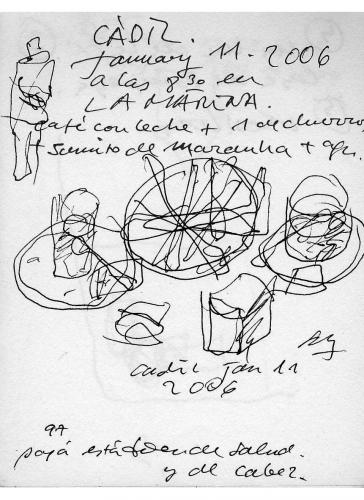 CÀDIZ.
January 11. 2006
a las 8'30 en
LA MARINA.
café con leche + 1 de churros
+ sumito de naranha + agu.
cadiz jan 11
2006
9A
papá está de salud.
y de cabez.